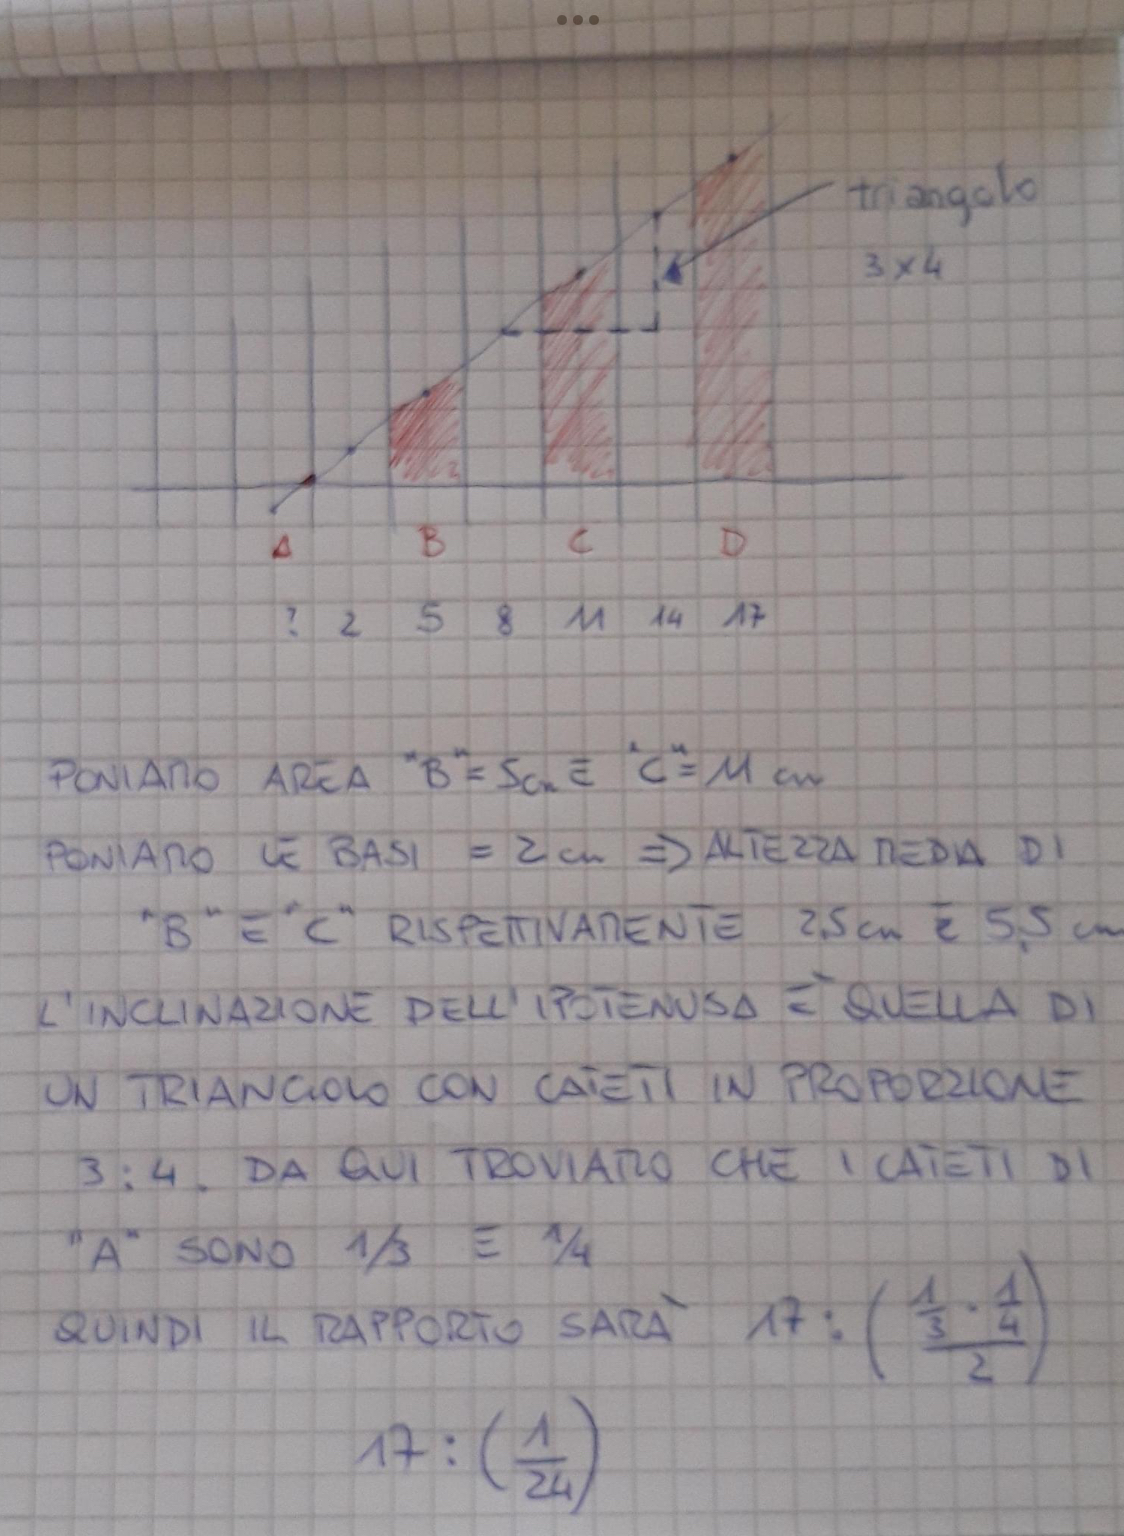 triangolo
3 x 4
A B C D
? 2 5 8 11 14 17
PONIAMO AREA "B"= 5cm E "C"= 11 cm
PONIAMO LE BASI = 2 cm => ALTEZZA MEDIA DI
"B" E "C" RISPETTIVAMENTE 2,5 cm E 5,5 cm
L'INCLINAZIONE DELL'IPOTENUSA E' QUELLA DI
UN TRIANGOLO CON CATETI IN PROPORZIONE
3:4. DA QUI TROVIAMO CHE I CATETI DI
"A" SONO 1/3 E 1/4
QUINDI IL RAPPORTO SARA' 17 : ( (1/3 · 1/4) / 2 )
17 : ( 1/24 )